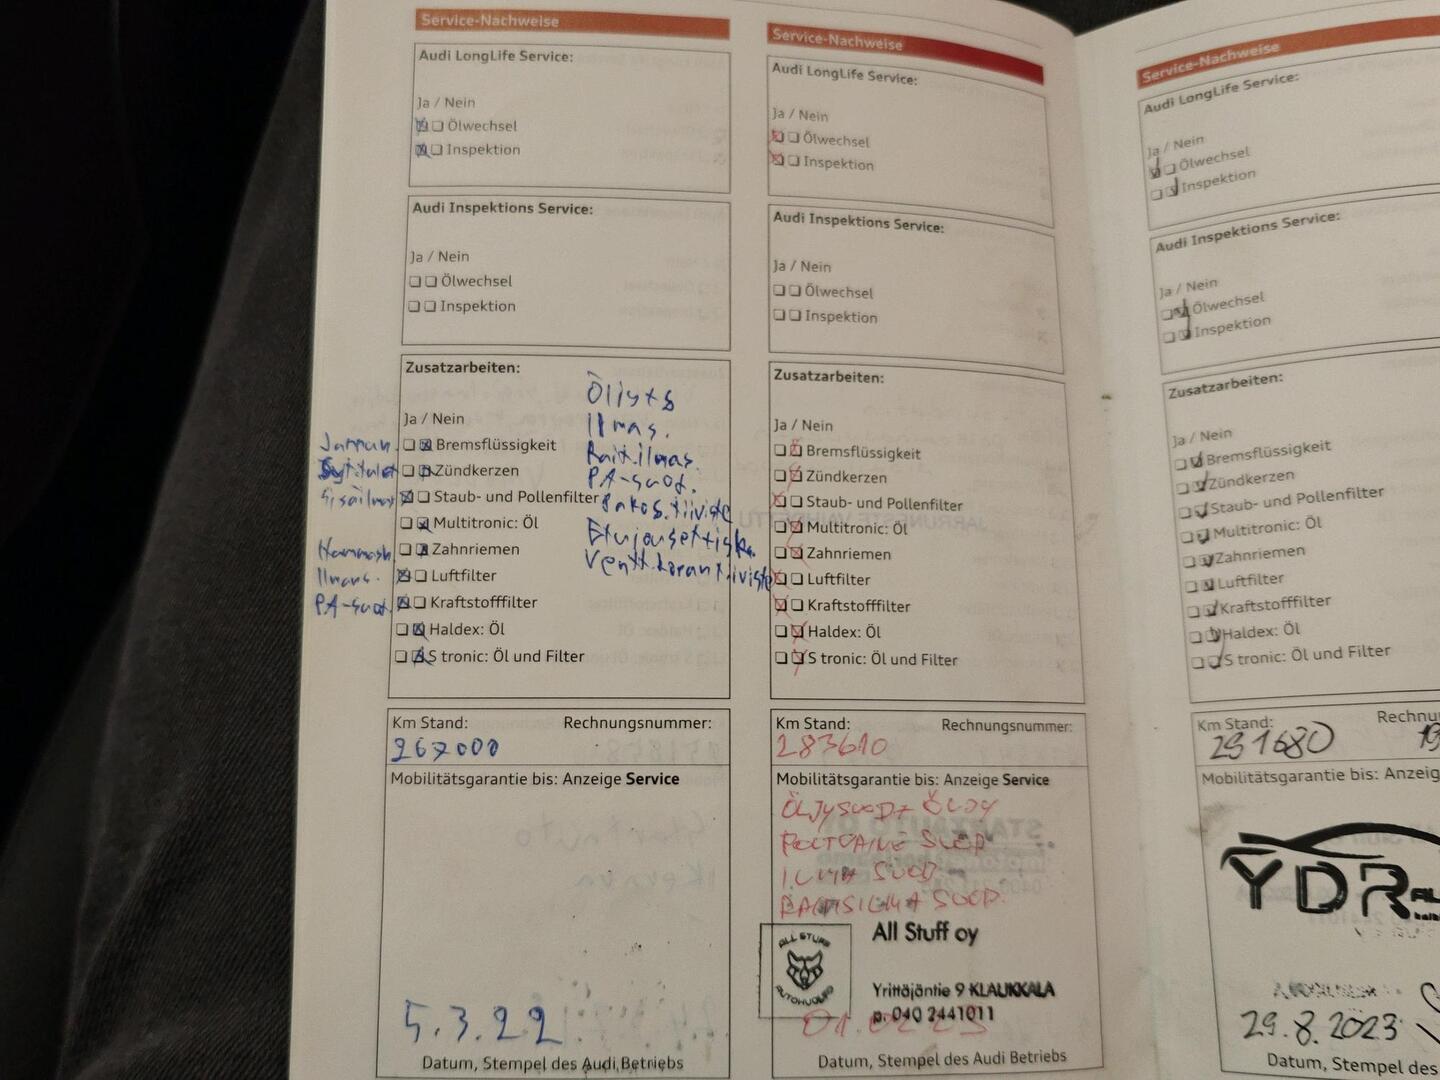 Service-Nachweise
Audi LongLife Service:
Ja / Nein
Ölwechsel
Inspektion
Audi Inspektions Service:
Ja / Nein
Ölwechsel
Inspektion
Zusatzarbeiten:
Öljyt+s
Ilmas.
Ja / Nein
Jarrun.
Bremsflüssigkeit
Rait.ilmas.
Zündkerzen
PA-suod.
Sisäilmas
Staub- und Pollenfilter
Pakos.tiiviste
Multitronic: Öl
Etujouset+isks.
Hammash.
Zahnriemen
Ilmas.
Luftfilter
PA-suod
Kraftstofffilter
Haldex: Öl
S tronic: Öl und Filter
Km Stand:
Rechnungsnummer:
267000
Mobilitätsgarantie bis: Anzeige Service
5.3.22
Datum, Stempel des Audi Betriebs
Service-Nachweise
Audi LongLife Service:
Ja / Nein
Ölwechsel
Inspektion
Audi Inspektions Service:
Ja / Nein
Ölwechsel
Inspektion
Zusatzarbeiten:
Ja / Nein
Bremsflüssigkeit
Zündkerzen
Staub- und Pollenfilter
Multitronic: Öl
Zahnriemen
Luftfilter
Kraftstofffilter
Haldex: Öl
S tronic: Öl und Filter
Km Stand:
Rechnungsnummer:
283610
Mobilitätsgarantie bis: Anzeige Service
ÖLJYSUOD+ ÖLJY
POLTOAINE SUOD
ILMA SUOD
RAITISILMA SUOD.
ALL STUFF
AUTOHUOLTO
All Stuff oy
Yrittäjäntie 9 KLAUKKALA
p. 040 2441011
Datum, Stempel des Audi Betriebs
Service-Nachweise
Audi LongLife Service:
Ja / Nein
Ölwechsel
Inspektion
Audi Inspektions Service:
Ja / Nein
Ölwechsel
Inspektion
Zusatzarbeiten:
Ja / Nein
Bremsflüssigkeit
Zündkerzen
Staub- und Pollenfilter
Multitronic: Öl
Zahnriemen
Luftfilter
Kraftstofffilter
Haldex: Öl
S tronic: Öl und Filter
Km Stand:
Rechnu
291680
19
Mobilitätsgarantie bis: Anzeig
YDR
29.8.2023
Datum, Stempel des